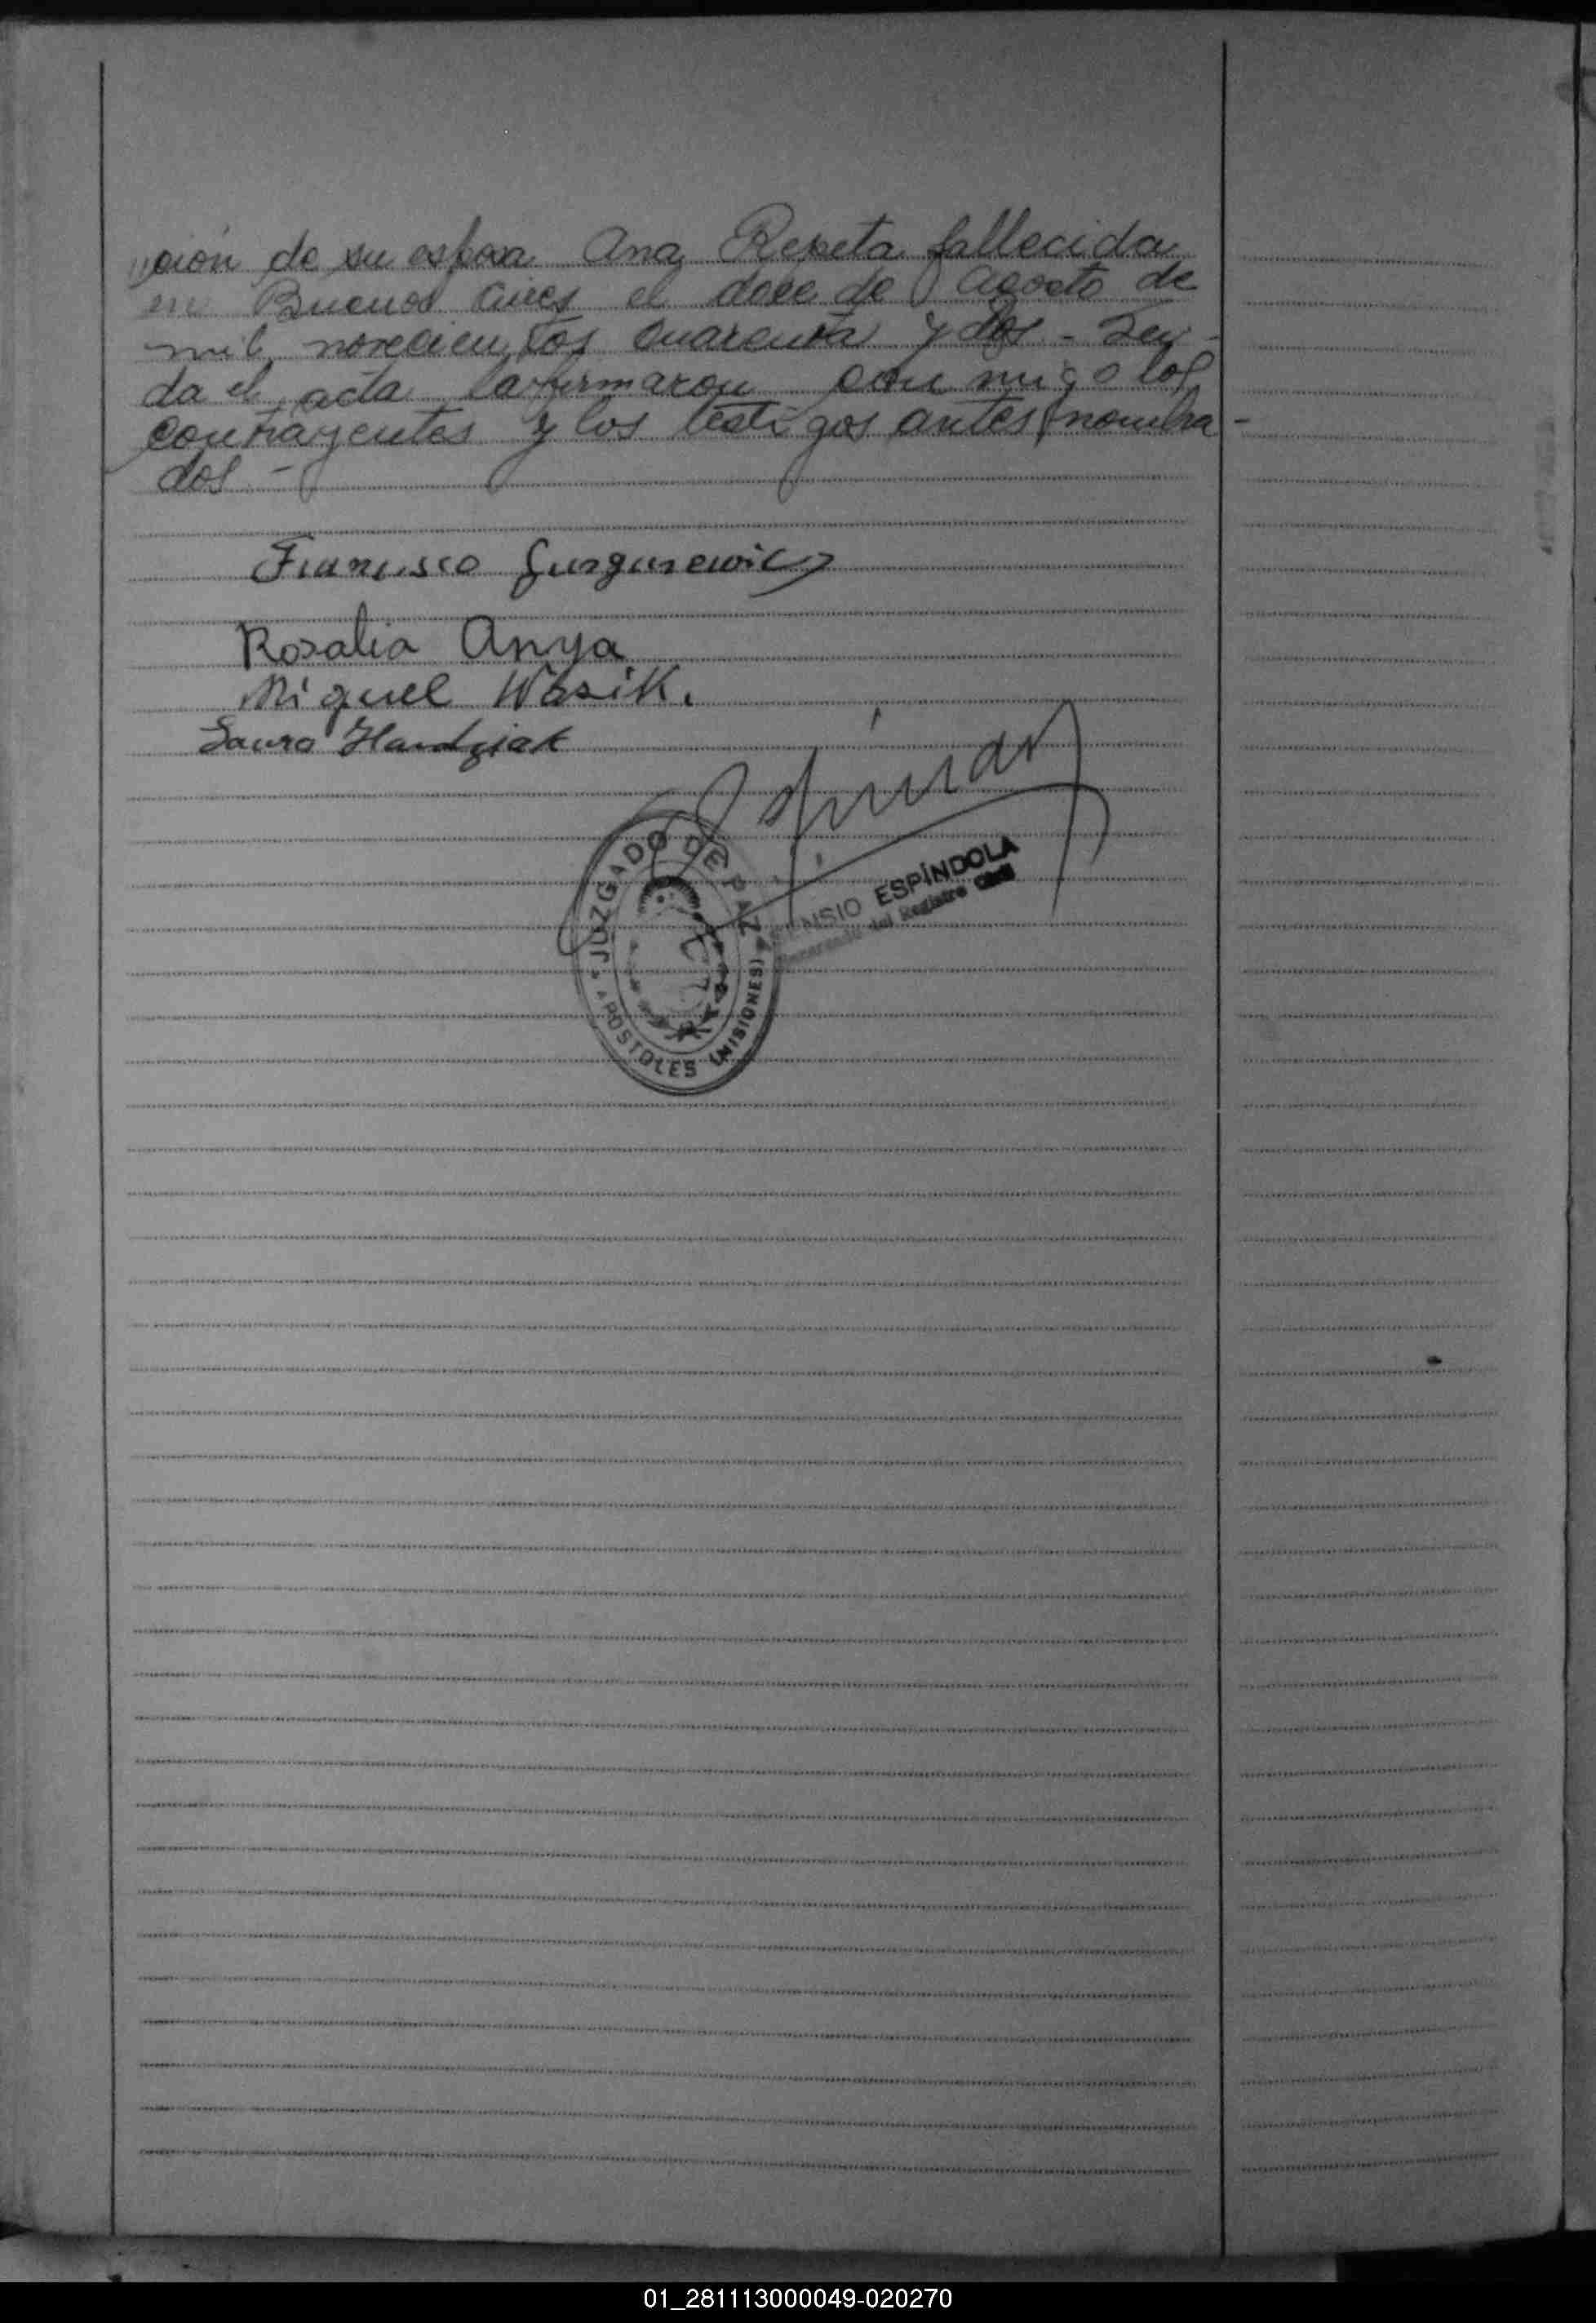 ción de su esposa Ana Repeta fallecida
en Buenos Aires el doce de Agosto de
mil novecientos cuarenta y dos - Leí-
da el acta la firmaron conmigo los
contrayentes y los testigos antes nombra-
dos -
Francisco Gurgurewicz
Rosalia Anya
Miguel Wasik.
Lauro Handziak
JUZGADO DE PAZ
APOSTOLES (MISIONES)
ESPÍNDOLA
del Registro Civil
01_281113000049-020270